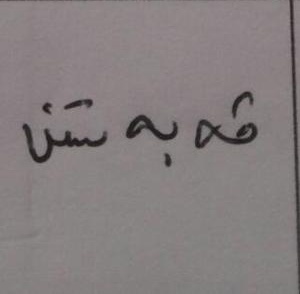 قه به ستن